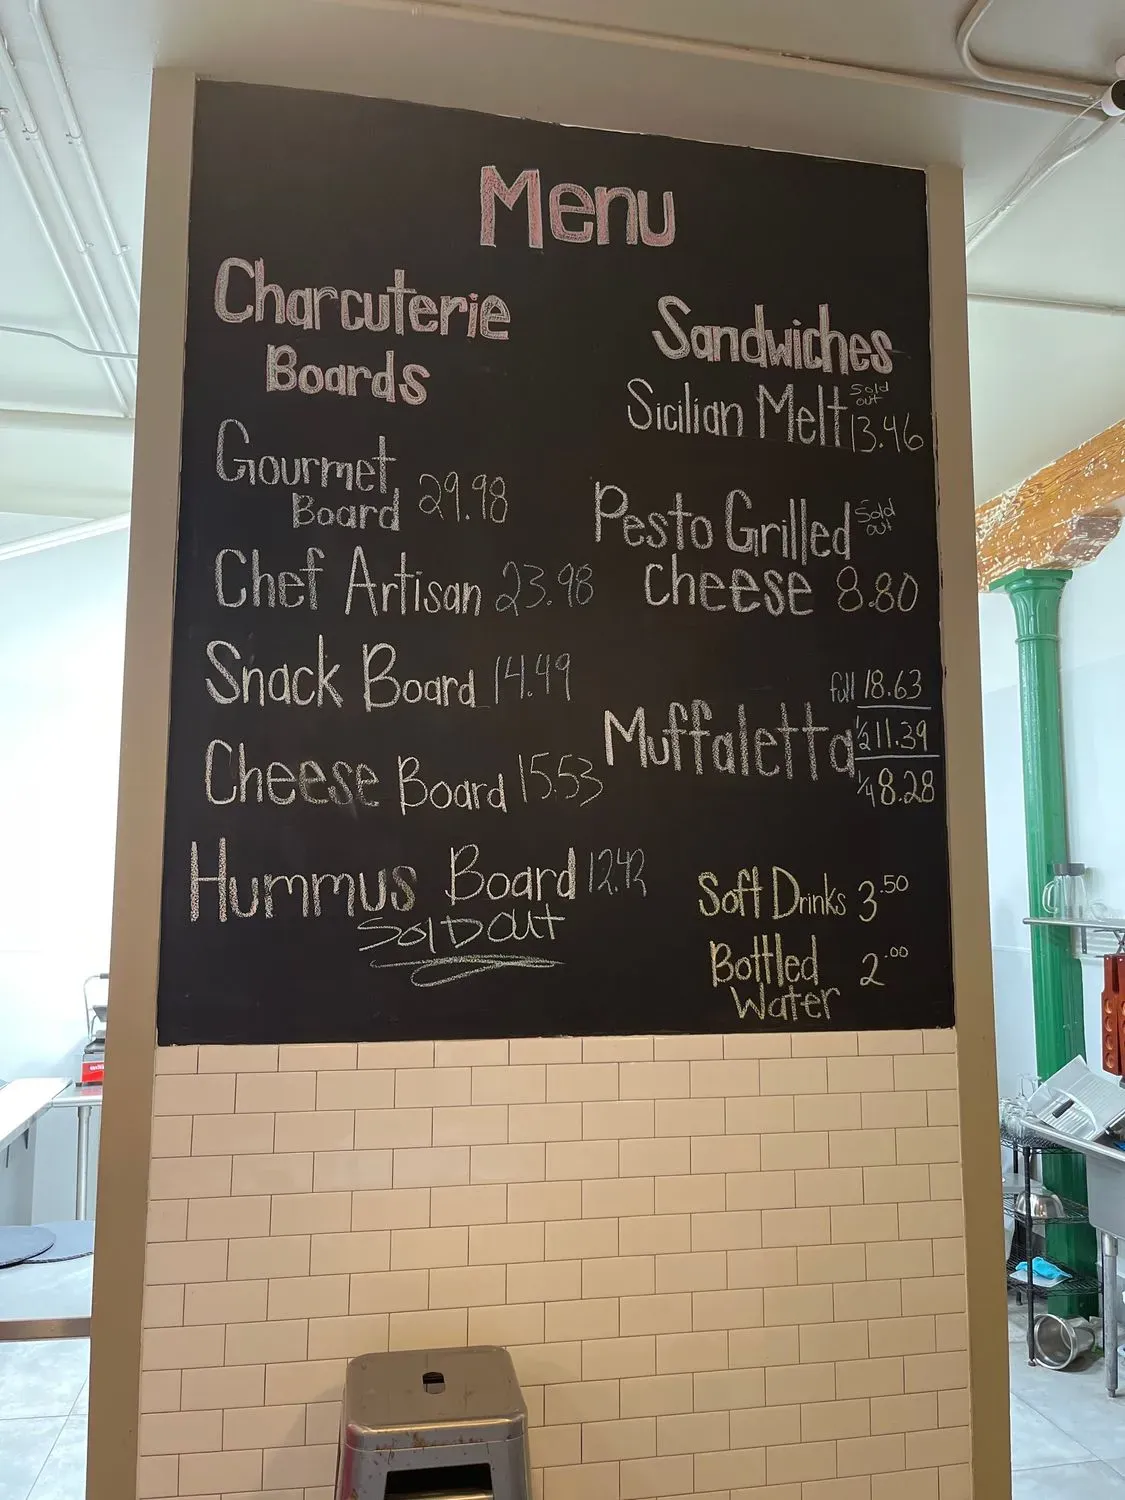 Menu
Charcuterie
Boards
Gourmet
Board 29.98
Chef Artisan 23.98
Snack Board 14.49
Cheese Board 15.53
Hummus Board 12.42
Sold Out
Sandwiches
Sicilian Melt Sold out 13.46
Pesto Grilled Sold out
Cheese 8.80
full 18.63
Muffaletta 1/2 11.39
1/4 8.28
Soft Drinks 3.50
Bottled 2.00
Water